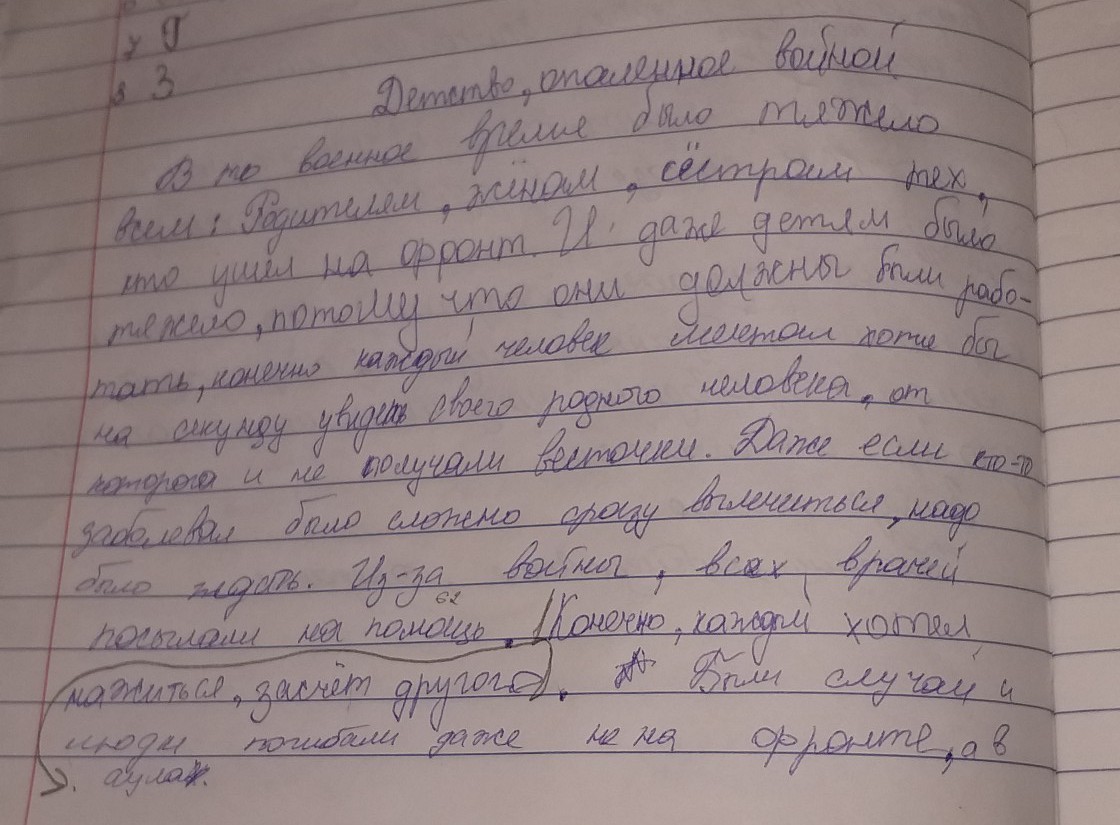 у g
в 3
Детство, опаленное войной
В то военное время было тяжело
всем: Родителям, жёнам, сёстрам тех,
кто ушёл на фронт. И даже детям было
тяжело, потому что они должны были рабо-
тать, конечно каждый человек мечтал хотя бы
на секунду увидеть своего родного человека, от
которого и не получали весточки. Даже если кто-то
заболевал было сложно сразу вылечиться, надо
было ждать. Из-за войны, всех врачей
посылали на помощь. Конечно, каждый хотел
62
нажиться, засчёт другого. Были случаи и
люди погибали даже не на фронте, а в
аулах.